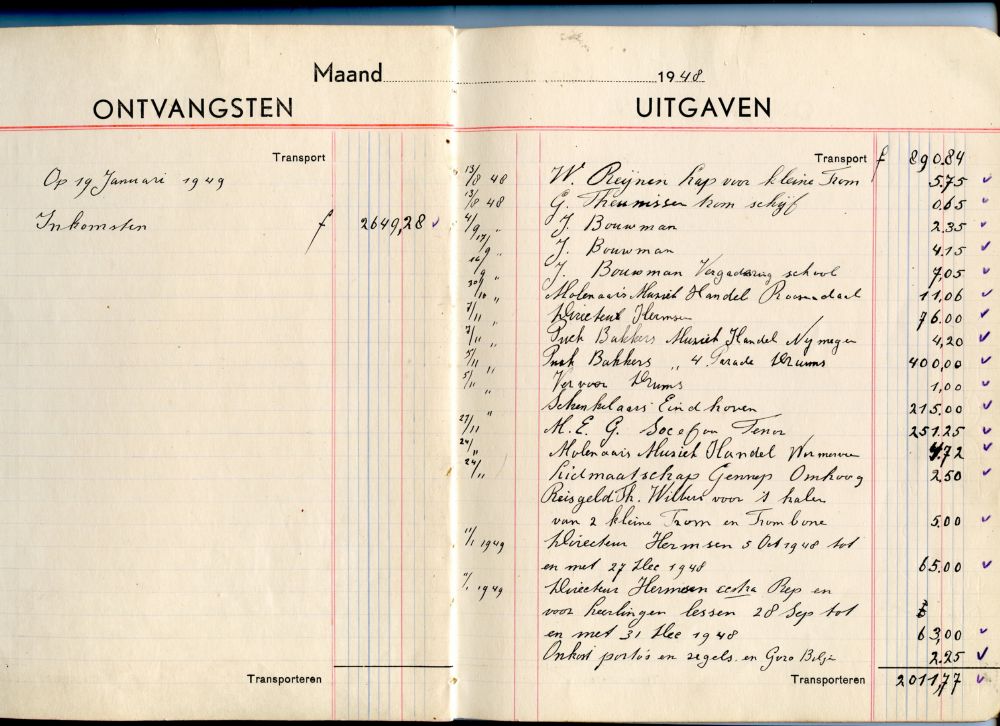 Maand
ONTVANGSTEN
Transport
Op 19 Januari 1949
Inkomsten f 2649,28 ✓
Transporteren
1948
UITGAVEN
Transport f 890.84
13/8 48 W. Reijnen kap voor kleine Trom 5.75 ✓
13/8 48 G. Theunissen trom schijf 0.65 ✓
4/9 " J. Bouwman 2.35 ✓
17/9 " J. Bouwman 4.15 ✓
16/9 " J. Bouwman Vergadering school 7,05 ✓
20/10 " Molenaars Muziek Handel Roosendaal 11,06 ✓
7/11 " Directeur Hermsen 76.00 ✓
7/11 " Puck Bakkers Muziek Handel Nijmegen 4,20 ✓
5/11 " Puck Bakkers " 4 Parade Drums 400,00 ✓
5/11 " Vervoer Drums 1,00 ✓
" Schenkelaars Eindhoven 215.00 ✓
27/11 M. E. G. Tenor 251.25 ✓
24/11 Molenaars Muziek Handel Wormerveer 4.72 ✓
24/11 Lidmaatschap Gennep Omhoog 2.50 ✓
Reisgeld Th. Wilbers voor 's halen
van 2 kleine Trom en Trombone 5.00 ✓
11/1 1949 Directeur Hermsen 5 Oct 1948 tot
en met 27 Dec 1948 65.00 ✓
11/1 1949 Directeur Hermsen extra Rep en
voor leerlingen lessen 28 Sep tot
en met 31 Dec 1948 63,00 ✓
Onkost porto's en zegels en Giro Bilje 2.25 ✓
Transporteren 2011,77 ✓